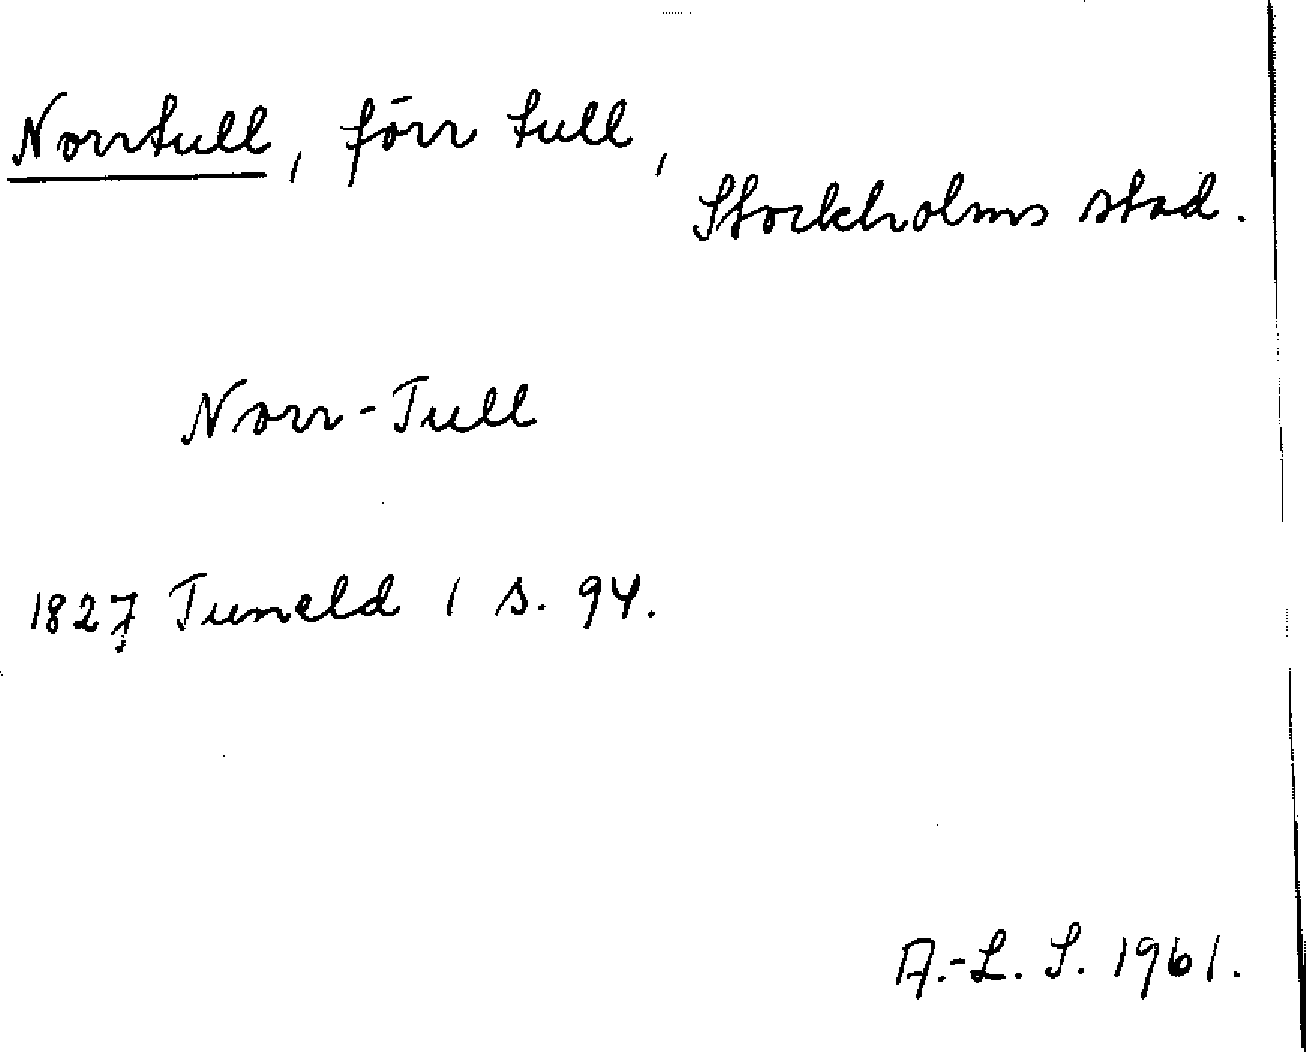 Norrtull, förr tull,
Stockholms stad.
Norr-Tull
1827 Tuneld 1 s. 94.
A.-L. S. 1961.